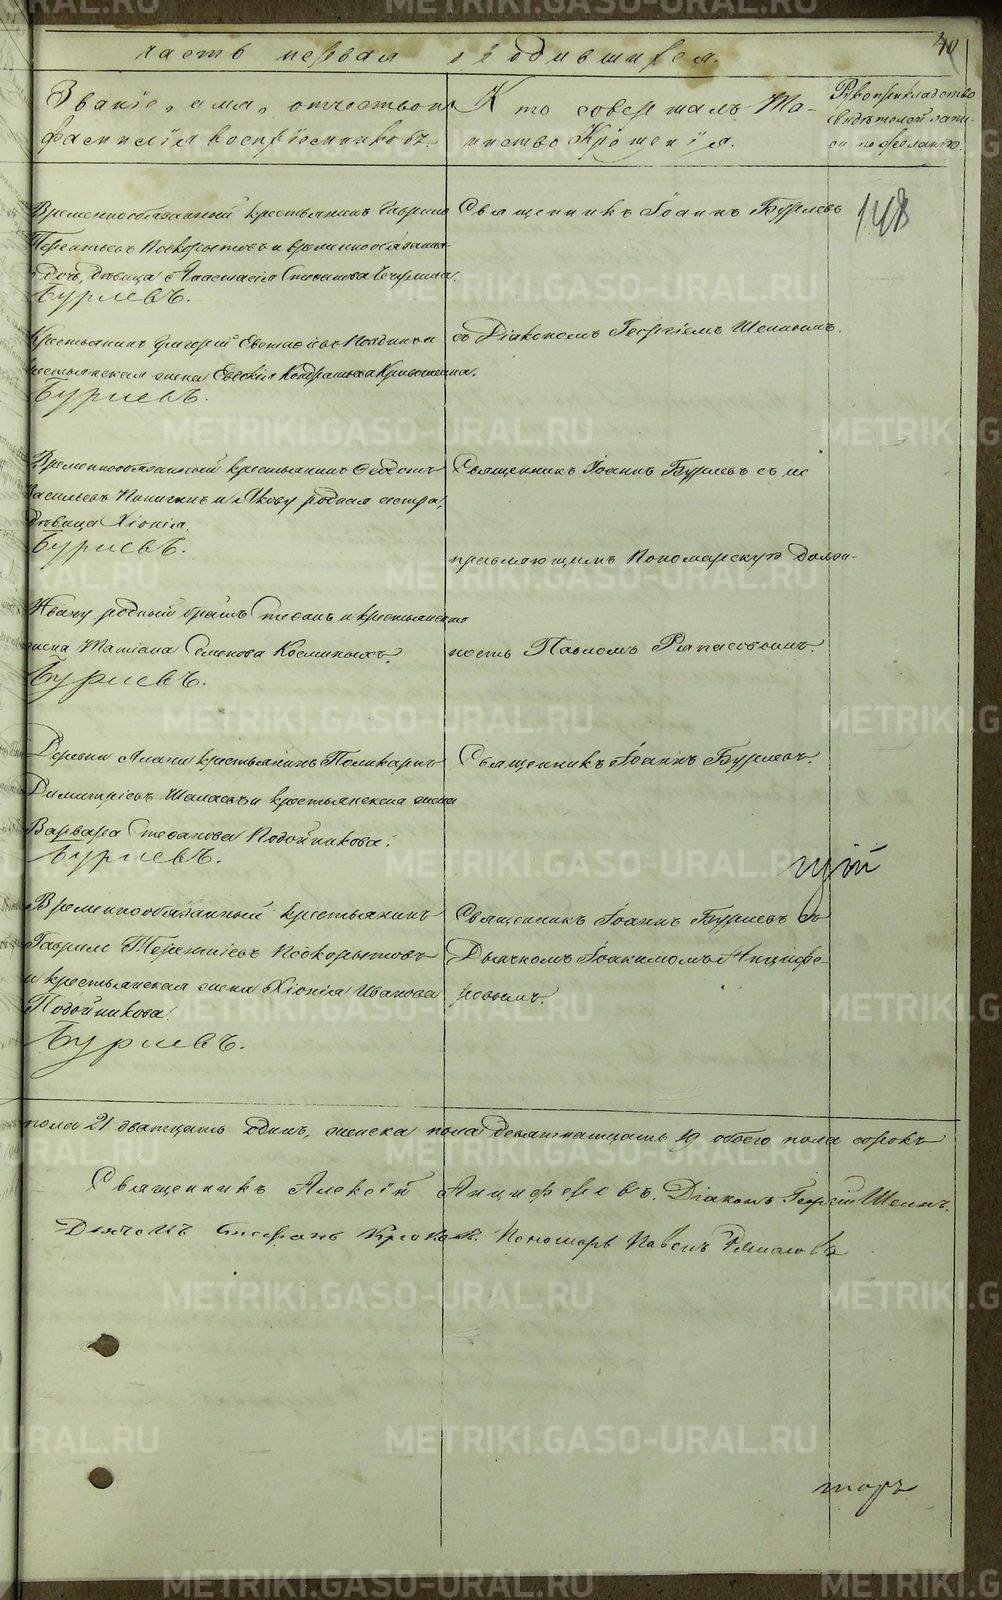 часть первая о родившихся.
Званіе, имя, отчество и
фамилія воспріемниковъ.
Кто совершалъ Та-
инство Крещенія.
Рукоприкладство
свидѣтелей запи-
си по желанію.
148
Временнообязанный крестьянинъ Гаврило
Терентьевъ Подкорытовъ и временнообязанн.
дочь, дѣвица Анастасія Степанова
Бурлевъ.
Священникъ Іоаннъ Бурлевъ
Крестьянинъ Григорій
крестьянская жена Евдокія Кондратьева
Бурлевъ.
съ Діакономъ Георгіемъ Шеинымъ.
Временнообязанный крестьянинъ Ѳедотъ
Васильевъ и Якову родная сестра,
дѣвица Хіонія.
Бурлевъ.
Священникъ Іоаннъ Бурлевъ съ ис
правляющимъ Пономарскую Долж-
Ивану родный братъ Степанъ и крестьянская
жена Татіана Семенова Косминыхъ.
Бурлевъ.
ность Павломъ
Деревни крестьянинъ Поликарпъ
Димитріевъ и крестьянская жена
Варвара Степанова Подойникова.
Бурлевъ.
Священникъ Іоаннъ Бурлевъ.
Временнообязанный крестьянинъ
Гаврило Терентіевъ Подкорытовъ
и крестьянская жена Хіонія Иванова
Подойникова.
Бурлевъ.
Священникъ Іоаннъ Бурлевъ съ
Дьячкомъ Іоакимомъ Анцифе-
ровымъ.
пола 21 дватцать одинъ, женска пола девятнатцать 19 обоего пола сорокъ
Священникъ Алексій Анциферовъ. Діаконъ Георгій Шеинъ.
Дьячекъ Стефанъ Пономарь Павелъ
METRIKI.GASO-URAL.RU